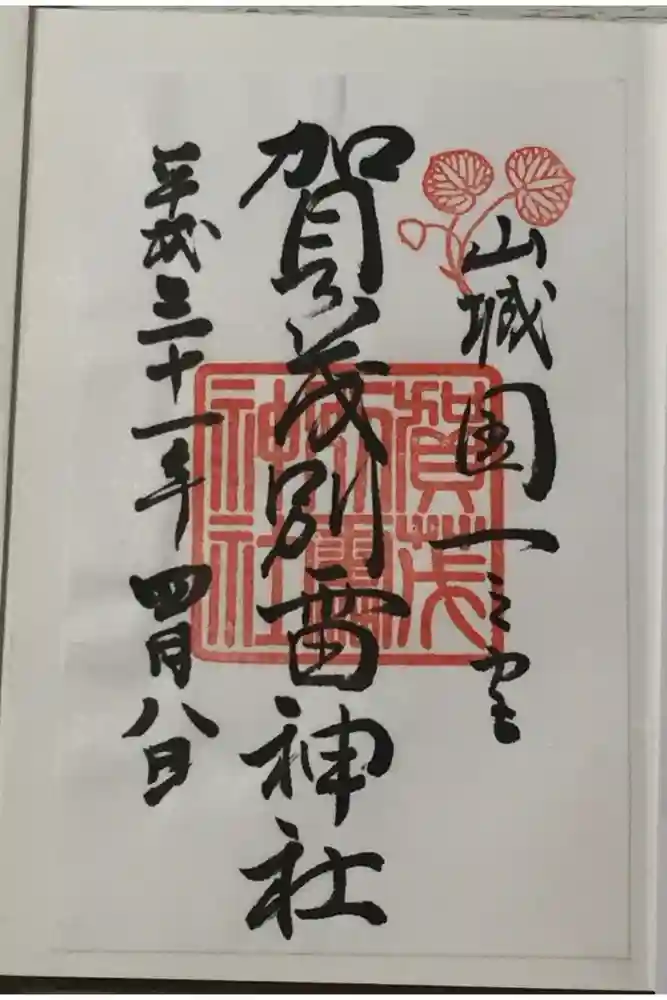 山城国一之宮
賀茂別雷神社
平成三十一年四月八日
賀茂
別雷
神社